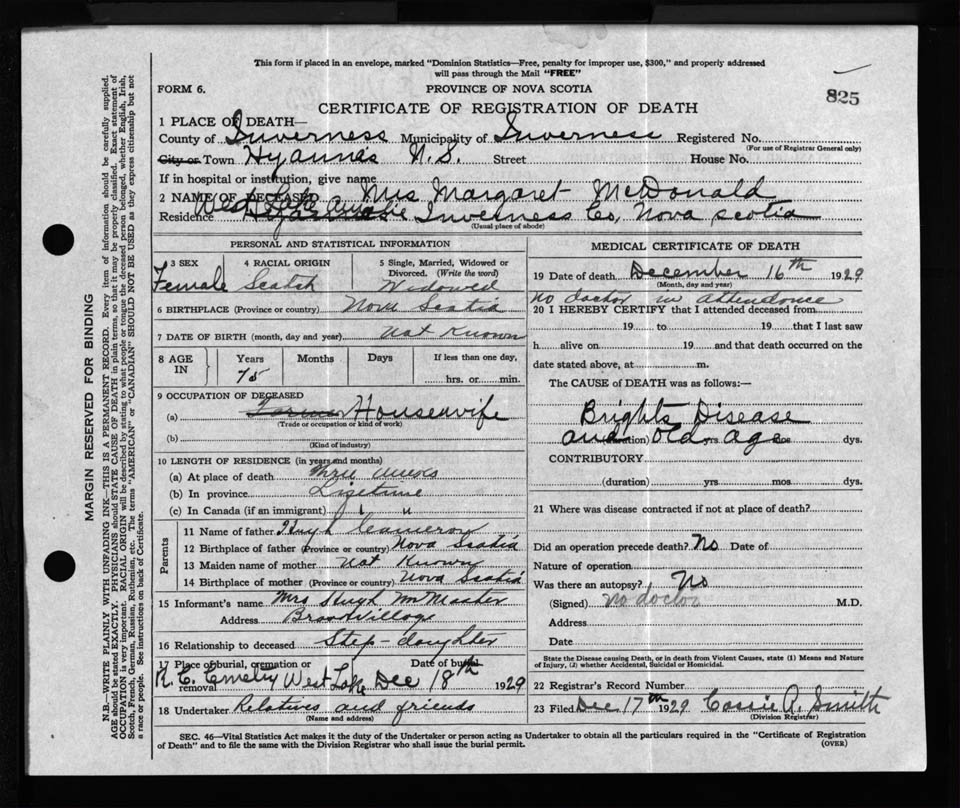 This form if placed in an envelope, marked "Dominion Statistics—Free, penalty for improper use, $300," and properly addressed
will pass through the Mail "FREE"
825
FORM 6.
PROVINCE OF NOVA SCOTIA
CERTIFICATE OF REGISTRATION OF DEATH
1 PLACE OF DEATH—
County of Inverness Municipality of Inverness Registered No.
(For use of Registrar General only)
City or Town Hyannes N.S. Street House No.
If in hospital or institution, give name
2 NAME OF DECEASED Mrs Margaret McDonald
Residence West Lake Inverness Co, Nova Scotia
(Usual place of abode)
PERSONAL AND STATISTICAL INFORMATION
3 SEX 4 RACIAL ORIGIN 5 Single, Married, Widowed or Divorced. (Write the word)
Female Scotch Widowed
6 BIRTHPLACE (Province or country) Nova Scotia
7 DATE OF BIRTH (month, day and year) Not Known
8 AGE IN Years Months Days If less than one day,
75 hrs. or min.
9 OCCUPATION OF DECEASED
(a) Farmer Housewife
(Trade or occupation or kind of work)
(b)
(Kind of industry)
10 LENGTH OF RESIDENCE (in years and months)
(a) At place of death three
(b) In province Lifetime
(c) In Canada (if an immigrant) " "
Parents
11 Name of father Hugh Cameron
12 Birthplace of father (Province or country) Nova Scotia
13 Maiden name of mother Not Known
14 Birthplace of mother (Province or country) Nova Scotia
15 Informant's name Mrs Hugh McMaster
Address Broadvillage
16 Relationship to deceased Step-daughter
17 Place of burial, cremation or removal Date of burial
R.C. West Lake Dec 18th 1929
18 Undertaker Relatives and friends
(Name and address)
MEDICAL CERTIFICATE OF DEATH
19 Date of death December 16th 1929
(Month, day and year)
no doctor in attendance
20 I HEREBY CERTIFY that I attended deceased from
19 to 19 that I last saw
h alive on 19 and that death occurred on the
date stated above, at m.
The CAUSE of DEATH was as follows:—
Brights Disease
and old age
(duration) yrs mos dys.
CONTRIBUTORY
(duration) yrs mos dys.
21 Where was disease contracted if not at place of death?
Did an operation precede death? No Date of
Nature of operation
Was there an autopsy? No
(Signed) no doctor M.D.
Address
Date
State the Disease causing Death, or in death from Violent Causes, state (1) Means and Nature
of Injury, (2) whether Accidental, Suicidal or Homicidal.
22 Registrar's Record Number
23 Filed Dec 17th 1929 Cassie A. Smith
(Division Registrar)
SEC. 46—Vital Statistics Act makes it the duty of the Undertaker or person acting as Undertaker to obtain all the particulars required in the "Certificate of Registration
of Death" and to file the same with the Division Registrar who shall issue the burial permit.
(OVER)
MARGIN RESERVED FOR BINDING
N.B.—WRITE PLAINLY WITH UNFADING INK—THIS IS A PERMANENT RECORD. Every item of information should be carefully supplied.
AGE should be stated EXACTLY. PHYSICIANS should STATE CAUSE OF DEATH in plain terms, so that it may be properly classified. Exact statement of
OCCUPATION is very important. RACIAL ORIGIN will be described by stating to what people or tongue the deceased person belonged, whether English, Irish,
Scotch, French, German, Russian, Ruthenian, etc. The terms "AMERICAN" or "CANADIAN" SHOULD NOT BE USED as they express citizenship but not
a race or people. See instructions on back of Certificate.